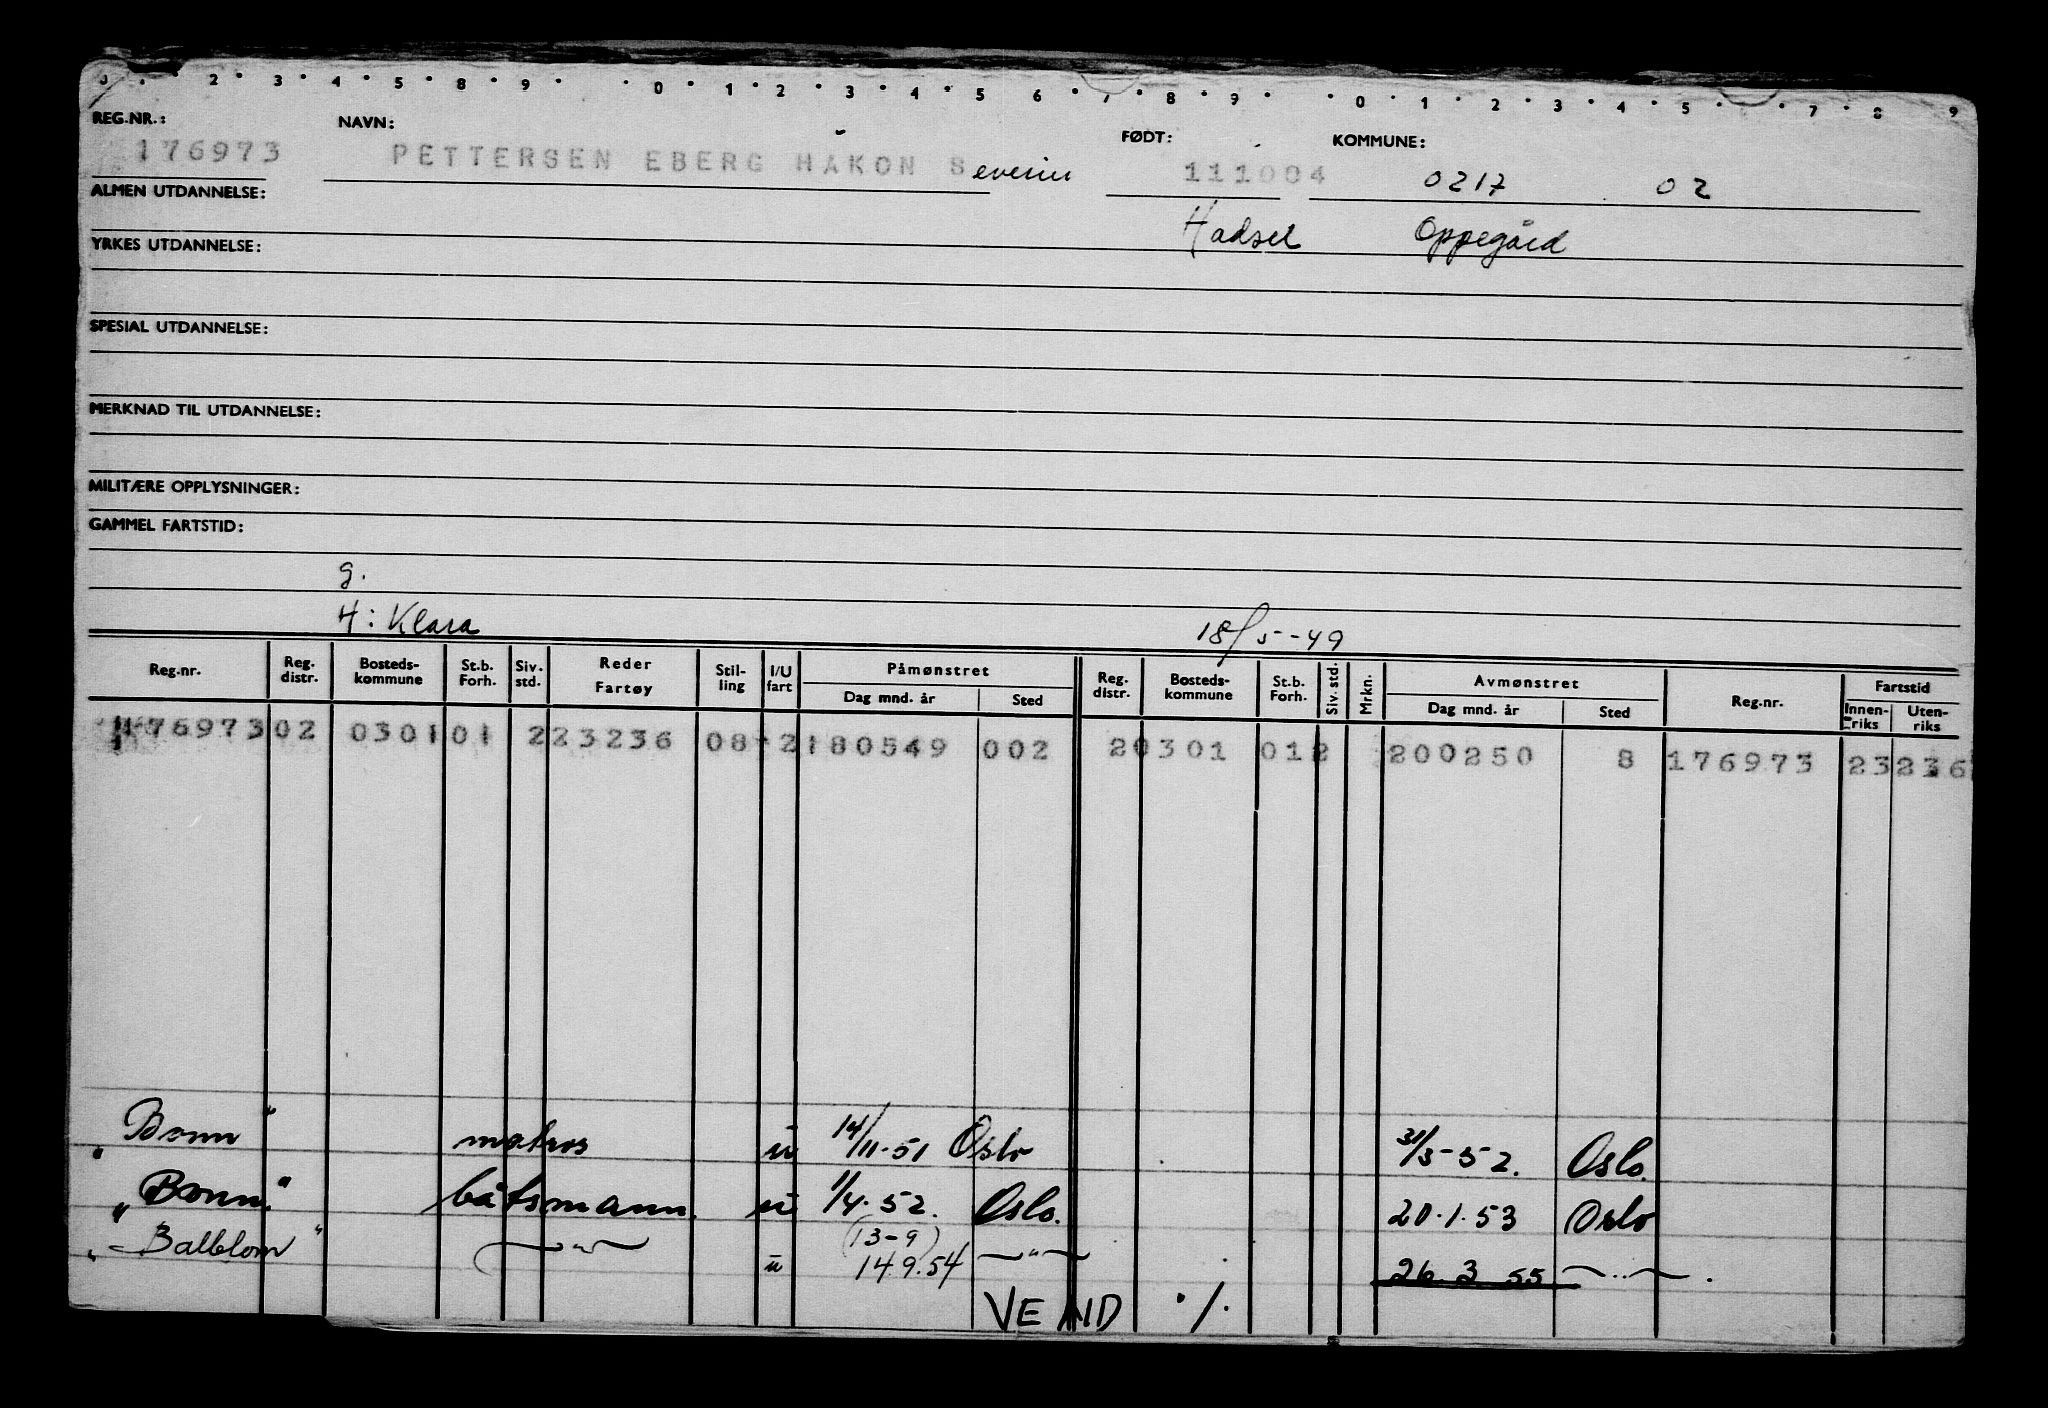 2 3 4 5 8 9 0 1 2 3 4 5 6 7 8 9 0 1 2 3 4 5 7 8 9
REG.NR.: NAVN: FØDT: KOMMUNE:
176973 PETTERSEN EBERG HÅKON Severin 111004 0217 02
ALMEN UTDANNELSE: Hadsel Oppegård
YRKES UTDANNELSE:
SPESIAL UTDANNELSE:
MERKNAD TIL UTDANNELSE:
MILITÆRE OPPLYSNINGER:
GAMMEL FARTSTID:
g.
H: Klara 18/5-49
Reg.nr. Reg. distr. Bosteds-kommune St.b. Forh. Siv. std. Reder Fartøy Stil-ling I/U fart Påmønstret Dag mnd. år Sted Reg. distr. Bosteds-kommune St.b. Forh. Siv. std. Mrkn. Avmønstret Dag mnd. år Sted Reg.nr. Fartstid Innen-riks Uten-riks
176973 02 0301 01 2 23236 08-2 180549 002 2 0301 012 200250 8 176973 23236
"Bonn" matros u 14/11-51 Oslo 31/3-52. Oslo.
"Bonn." båtsmann. u 1/4.52. Oslo. 20.1.53 Oslo
(13-9)
"Balblom" —"— u 14.9.54 —"— 26.3.55 —"—.
VEND ./.